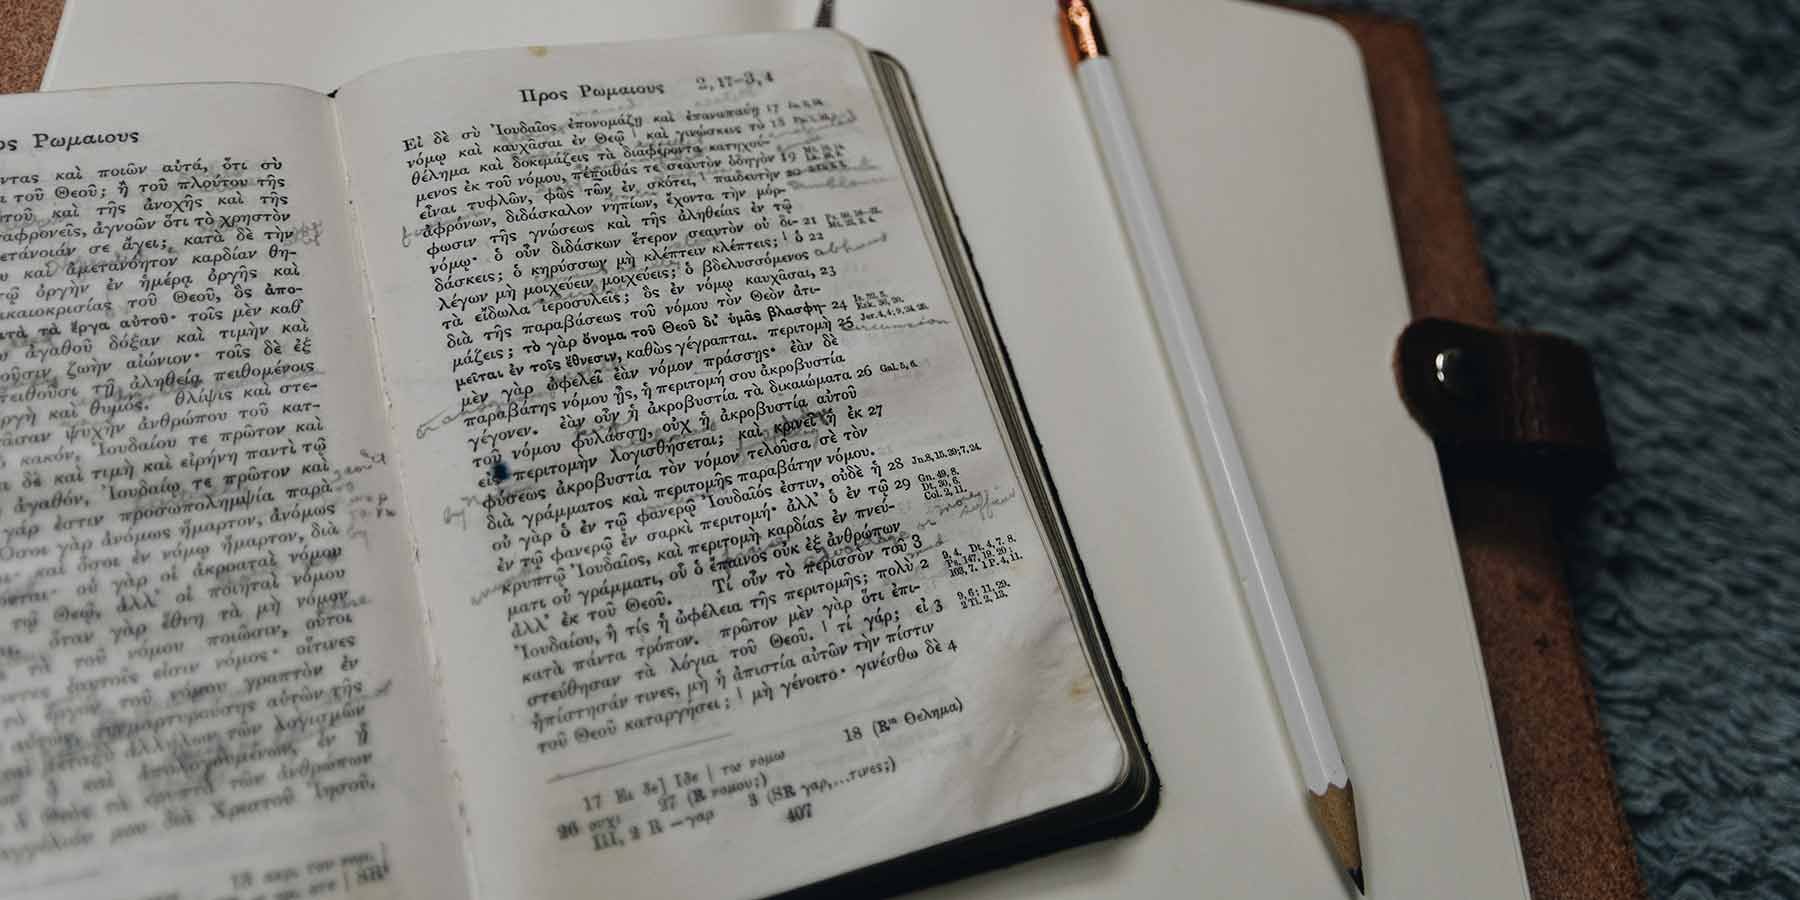 ος Ρωμαιους
ντας καὶ ποιῶν αὐτά, ὅτι σὺ
τοῦ Θεοῦ; ἢ τοῦ πλούτου τῆς
καὶ τῆς ἀνοχῆς καὶ τῆς
αφρονεῖς, ἀγνοῶν ὅτι τὸ χρηστὸν
ετάνοιάν σε ἄγει; κατὰ δὲ τὴν
καὶ ἀμετανόητον καρδίαν θη-
ὀργὴν ἐν ἡμέρᾳ ὀργῆς καὶ
ικαιοκρισίας τοῦ Θεοῦ, ὃς ἀπο-
τὰ ἔργα αὐτοῦ· τοῖς μὲν καθ’
ἀγαθοῦ δόξαν καὶ τιμὴν καὶ
οῦσιν ζωὴν αἰώνιον· τοῖς δὲ ἐξ
πειθοῦσι τῇ ἀληθείᾳ πειθομένοις
καὶ θυμός. θλῖψις καὶ στε-
ψυχὴν ἀνθρώπου τοῦ κατ-
κακόν, Ἰουδαίου τε πρῶτον καὶ
δὲ καὶ τιμὴ καὶ εἰρήνη παντὶ τῷ
ἀγαθόν, Ἰουδαίῳ τε πρῶτον καὶ
γάρ ἐστιν προσωπολημψία παρὰ
Ὅσοι γὰρ ἀνόμως ἥμαρτον, ἀνόμως
καὶ ὅσοι ἐν νόμῳ ἥμαρτον, διὰ
οὐ γὰρ οἱ ἀκροαταὶ νόμου
τῷ Θεῷ, ἀλλ’ οἱ ποιηταὶ νόμου
ὅταν γὰρ ἔθνη τὰ μὴ νόμον
τὰ τοῦ νόμου ποιῶσιν, οὗτοι
ἑαυτοῖς εἰσιν νόμος· οἵτινες
τὸ ἔργον τοῦ νόμου γραπτὸν ἐν
συμμαρτυρούσης αὐτῶν τῆς
μεταξὺ ἀλλήλων τῶν λογισμῶν
καὶ ἀπολογουμένων, ἐν ᾗ
τὰ κρυπτὰ τῶν ἀνθρώπων
μου διὰ Χριστοῦ Ἰησοῦ.
Προς Ρωμαιους 2,17–3,4
Εἰ δὲ σὺ Ἰουδαῖος ἐπονομάζῃ καὶ ἐπαναπαύῃ 17
νόμῳ καὶ καυχᾶσαι ἐν Θεῷ | καὶ γινώσκεις τὸ 18
θέλημα καὶ δοκιμάζεις τὰ διαφέροντα κατηχού-
μενος ἐκ τοῦ νόμου, πέποιθάς τε σεαυτὸν ὁδηγὸν 19
εἶναι τυφλῶν, φῶς τῶν ἐν σκότει, | παιδευτὴν 20
ἀφρόνων, διδάσκαλον νηπίων, ἔχοντα τὴν μόρ-
φωσιν τῆς γνώσεως καὶ τῆς ἀληθείας ἐν τῷ
νόμῳ· ὁ οὖν διδάσκων ἕτερον σεαυτὸν οὐ δι- 21
δάσκεις; ὁ κηρύσσων μὴ κλέπτειν κλέπτεις; | ὁ 22
λέγων μὴ μοιχεύειν μοιχεύεις; ὁ βδελυσσόμενος abhors
τὰ εἴδωλα ἱεροσυλεῖς; ὃς ἐν νόμῳ καυχᾶσαι, 23
διὰ τῆς παραβάσεως τοῦ νόμου τὸν Θεὸν ἀτι-
μάζεις; τὸ γὰρ ὄνομα τοῦ Θεοῦ δι’ ὑμᾶς βλασφη- 24
μεῖται ἐν τοῖς ἔθνεσιν, καθὼς γέγραπται. περιτομὴ 25 Jer.4,4; 9,24.25. circumcision
μὲν γὰρ ὠφελεῖ ἐὰν νόμον πράσσῃς· ἐὰν δὲ
παραβάτης νόμου ᾖς, ἡ περιτομή σου ἀκροβυστία
γέγονεν. ἐὰν οὖν ἡ ἀκροβυστία τὰ δικαιώματα 26 Gal.5,6.
τοῦ νόμου φυλάσσῃ, οὐχ ἡ ἀκροβυστία αὐτοῦ
εἰς περιτομὴν λογισθήσεται; καὶ κρινεῖ ἡ ἐκ 27
φύσεως ἀκροβυστία τὸν νόμον τελοῦσα σὲ τὸν
διὰ γράμματος καὶ περιτομῆς παραβάτην νόμου.
οὐ γὰρ ὁ ἐν τῷ φανερῷ Ἰουδαῖός ἐστιν, οὐδὲ ἡ 28 Jn.8,15.39; 7,24.
ἐν τῷ φανερῷ ἐν σαρκὶ περιτομή· ἀλλ’ ὁ ἐν τῷ 29 Gn.49,8. Dt.30,6. Col.2,11.
κρυπτῷ Ἰουδαῖος, καὶ περιτομὴ καρδίας ἐν πνεύ-
ματι οὐ γράμματι, οὗ ὁ ἔπαινος οὐκ ἐξ ἀνθρώπων
ἀλλ’ ἐκ τοῦ Θεοῦ. Τί οὖν τὸ περισσὸν τοῦ 3
Ἰουδαίου, ἢ τίς ἡ ὠφέλεια τῆς περιτομῆς; πολὺ 2 9,4. Dt.4,7.8. Ps.147,19.20; 103,7. 1 P.4,11.
κατὰ πάντα τρόπον. πρῶτον μὲν γὰρ ὅτι ἐπι-
στεύθησαν τὰ λόγια τοῦ Θεοῦ. | τί γάρ; εἰ 3 9,6; 11,29. 2 Ti.2,13.
ἠπίστησάν τινες, μὴ ἡ ἀπιστία αὐτῶν τὴν πίστιν
τοῦ Θεοῦ καταργήσει; | μὴ γένοιτο· γινέσθω δὲ 4
17 Ει δε] Ιδε | τω νομω 18 (Rᵐ Θελημα)
26 ουχι 27 (R νομου;) 3 (SR γαρ,...τινες;)
III, 2 R –γαρ
407